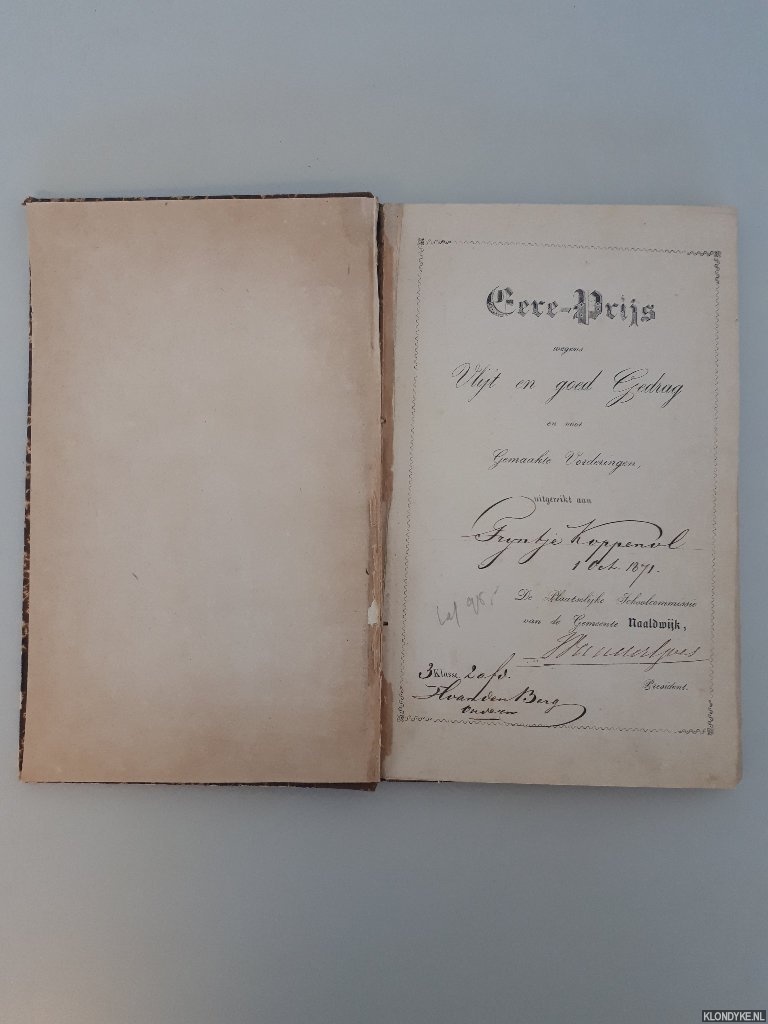 Eere-Prijs
wegens
Vlijt en goed Gedrag
en voor
Gemaakte Vorderingen,
uitgereikt aan
Tryntje Koppenol
1 Oct. 1871.
De Plaatselijke Schoolcommissie
van de Gemeente Naaldwijk,
President.
3 Klasse, 2 afd.
H van den Berg
KLONDYKE.NL